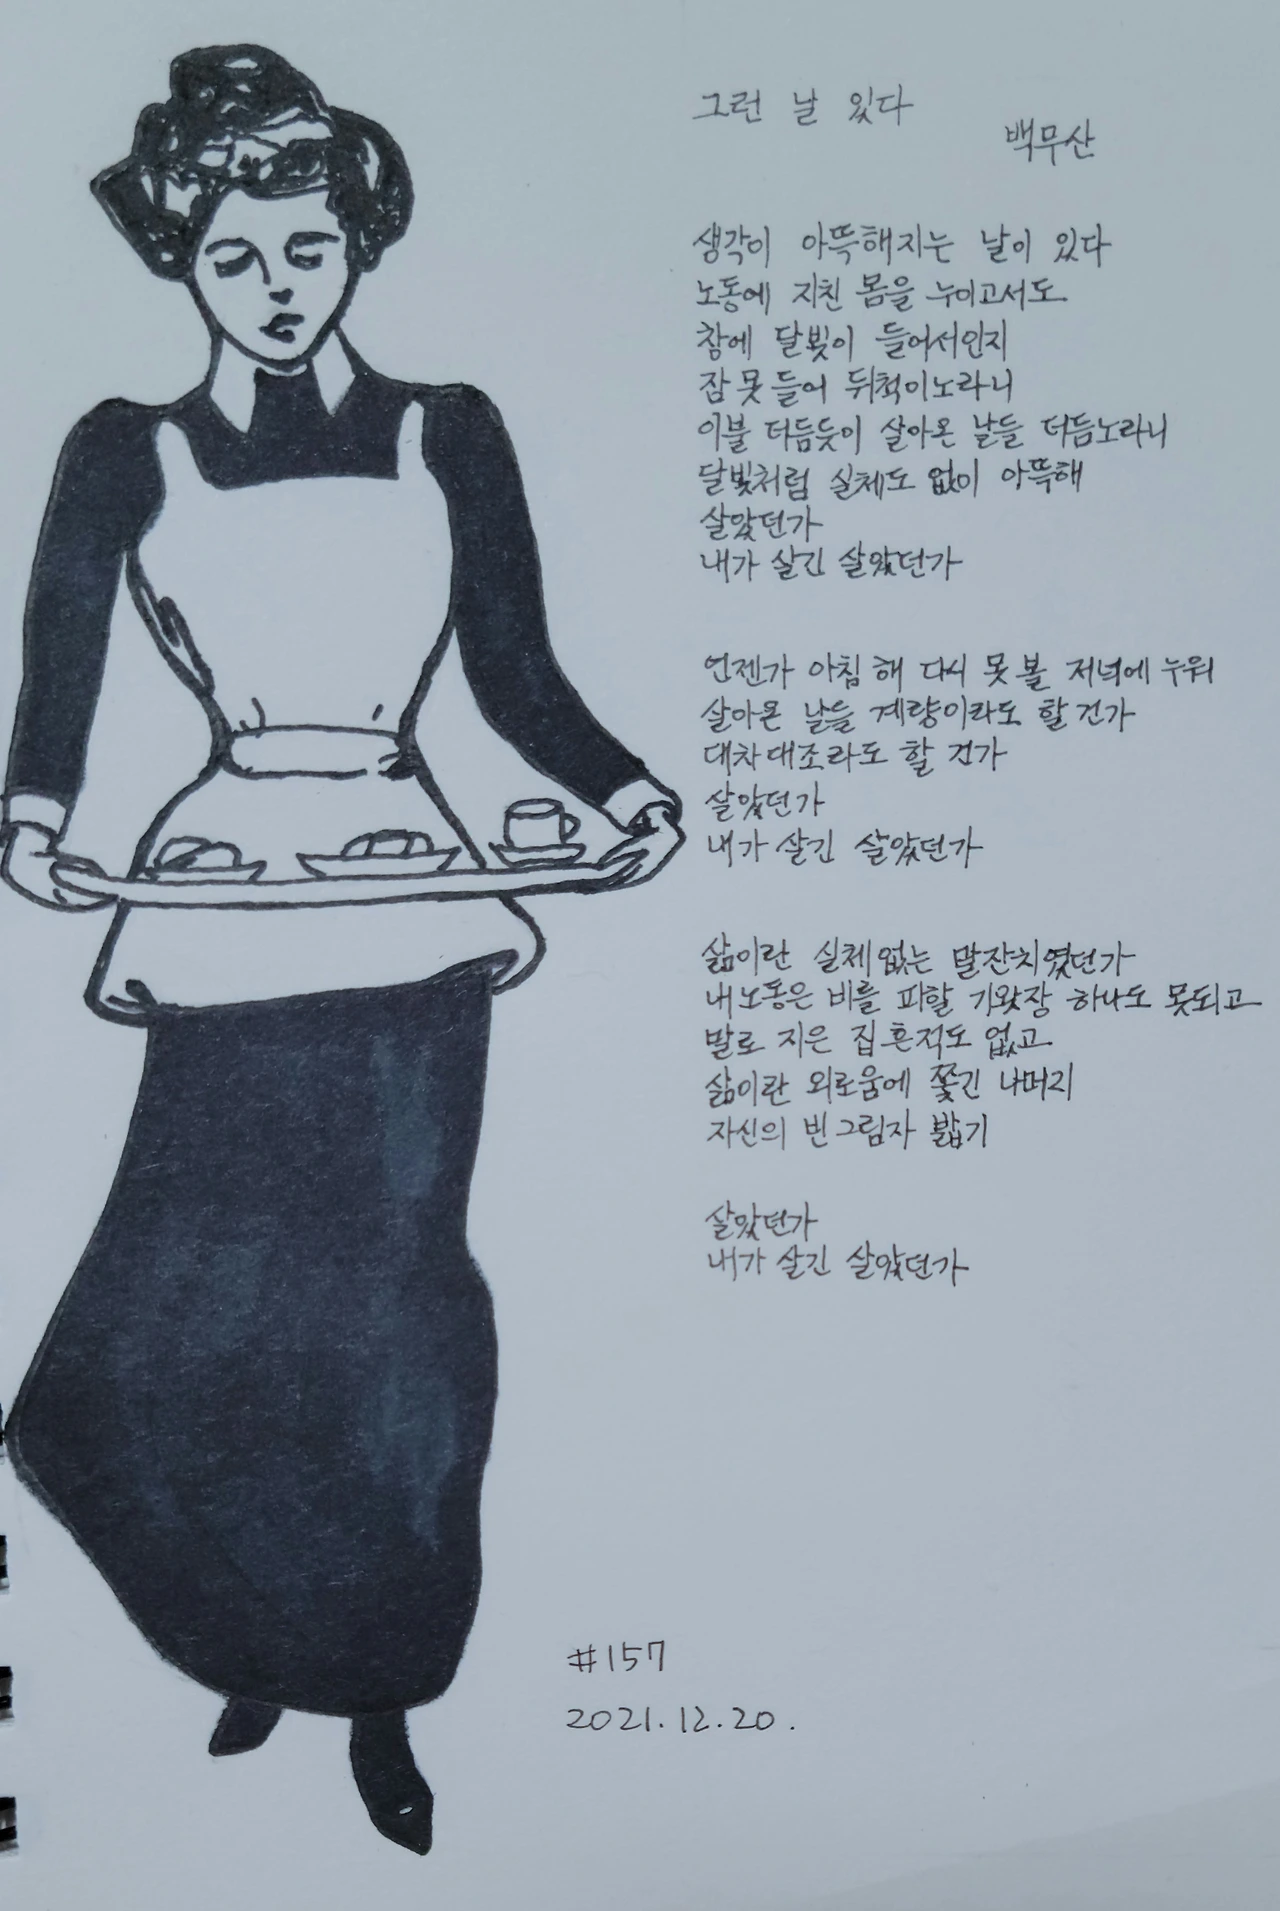 그런 날 있다
백무산
생각이 아뜩해지는 날이 있다
노동에 지친 몸을 누이고서도
창에 달빛이 들어서인지
잠 못 들어 뒤척이노라니
이불 더듬듯이 살아온 날들 더듬노라니
달빛처럼 실체도 없이 아뜩해
살았던가
내가 살긴 살았던가
언젠가 아침 해 다시 못 볼 저녁에 누워
살아온 날들 계량이라도 할 건가
대차대조라도 할 건가
살았던가
내가 살긴 살았던가
삶이란 실체 없는 말잔치였던가
내 노동은 비를 피할 기왓장 하나도 못되고
말로 지은 집 흔적도 없고
삶이란 외로움에 쫓긴 나머지
자신의 빈 그림자 밟기
살았던가
내가 살긴 살았던가
#157
2021.12.20.